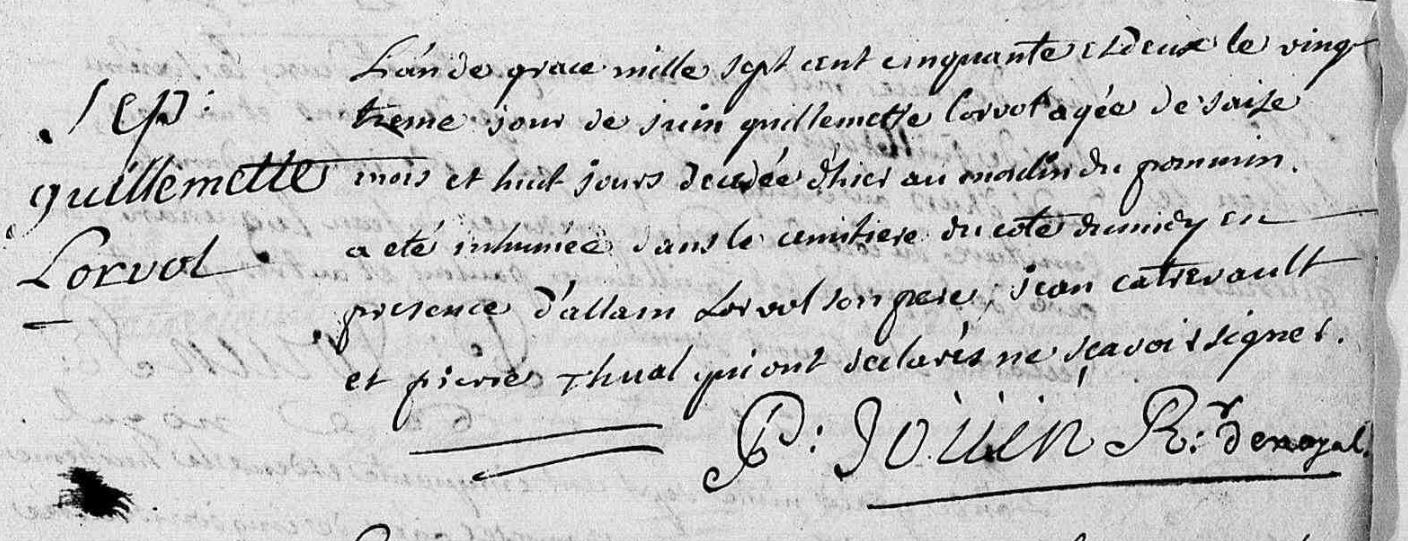 Sep:
guillemette
Lorvol
L'an de grace mille sept cent cinquante et deux le vingt
tieme jour de juin guillemette Lorvol agée de saise
mois et huit jours decedée d'hier au moulin du pommin.
a eté inhumée dans le cemitiere du coté du midy en
presence d'allain Lorvol son pere, jean catrevault
et pierre Thual qui ont declarés ne sçavoir signer.
P: Joüin R:r de noyal.